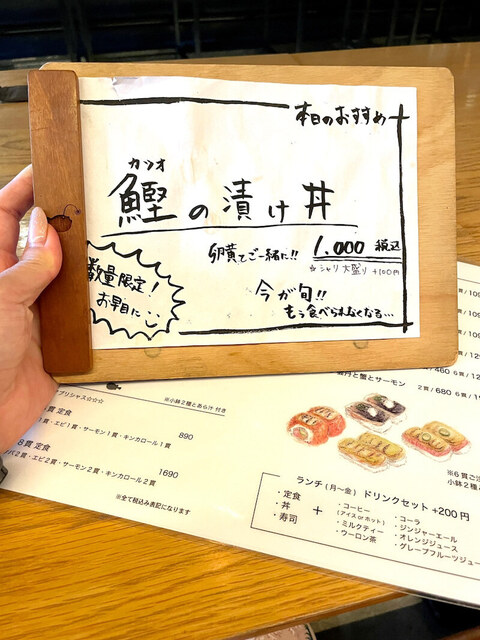 本日のおすすめ
カツオ
鰹の漬け丼
卵黄でご一緒に!! 1,000 税込
☆シャリ大盛り +100円
数量限定!
お早目に
今が旬!!
もう食べられなくなる…
貫/109
/129
/460 6貫/129
雲丹と蟹とサーモン 2貫/680 6貫/19
プリシャス☆☆☆ ※小鉢2種とあら汁 付き
貫 定食 890
・エビ1貫・サーモン1貫・キンカロール1貫
8貫 定食 1690
2貫・エビ2貫・サーモン2貫・キンカロール2貫
※全て税込み表記になります
※6貫ご
小鉢2種
ランチ(月〜金) ドリンクセット+200円
・定食
・丼
・寿司
+
・コーヒー
(アイス or ホット)
・ミルクティー
・ウーロン茶
・コーラ
・ジンジャーエール
・オレンジジュース
・グレープフルーツジュー